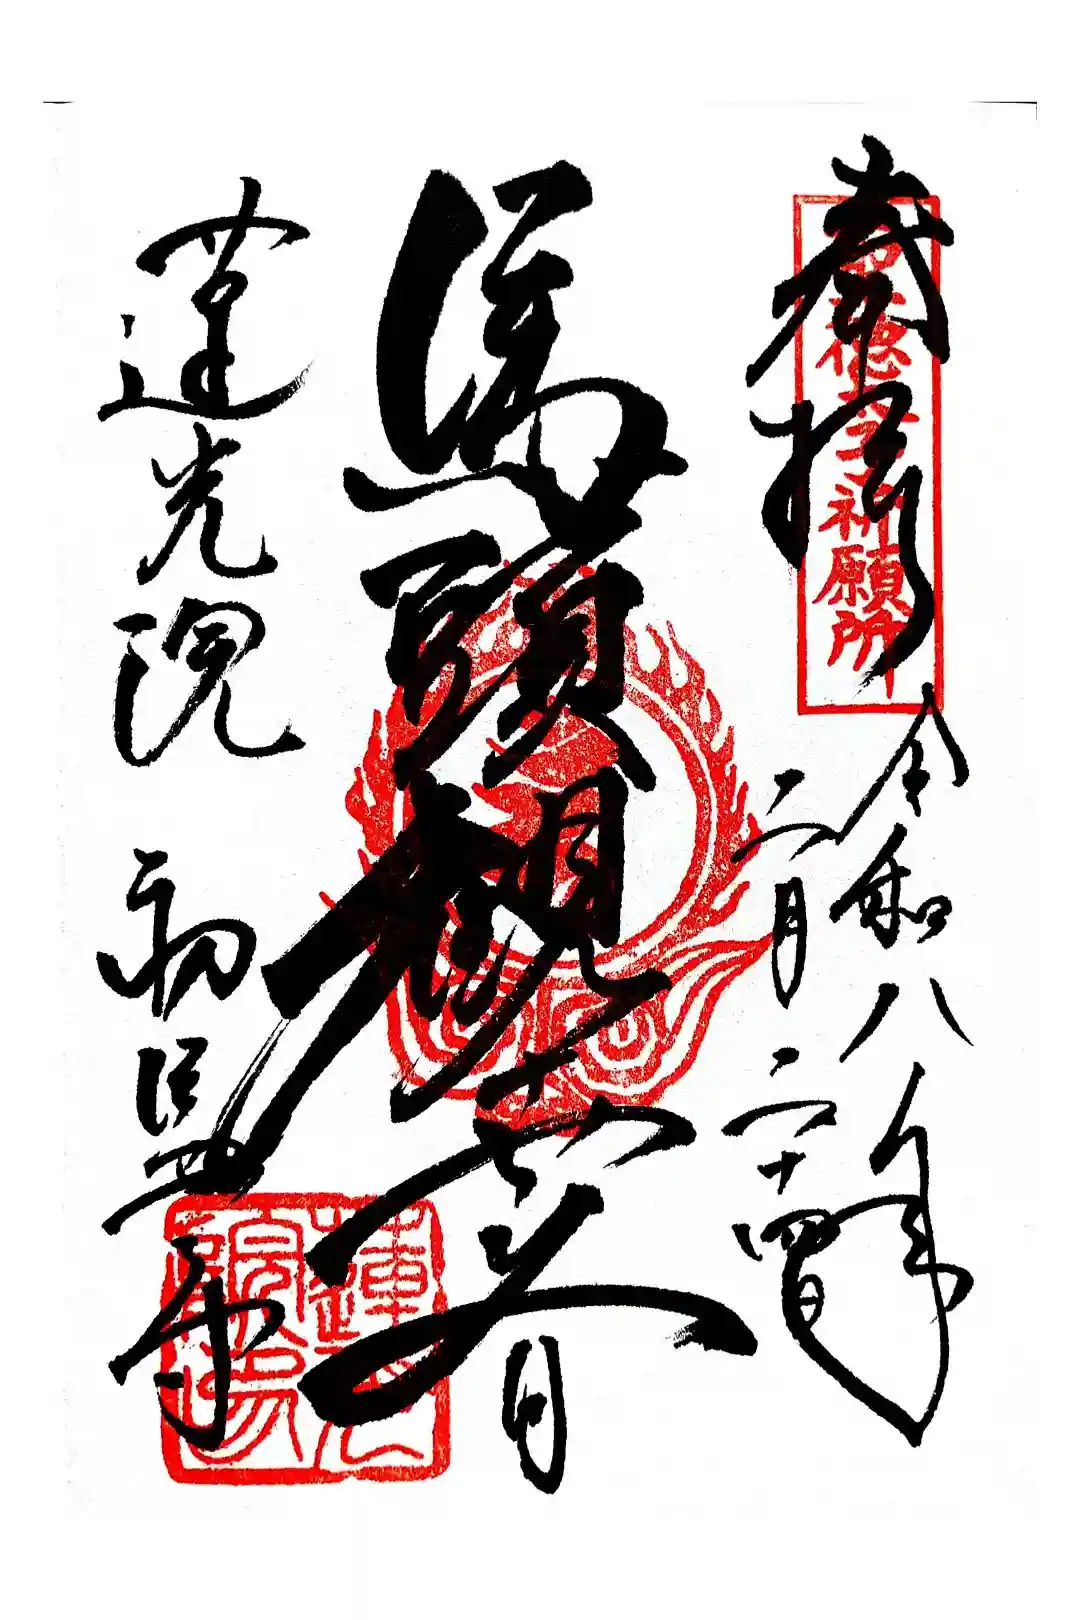 奉拝
聖徳太子祈願所
令和八年
二月二十四日
馬頭観世音
蓮光院 初馬寺